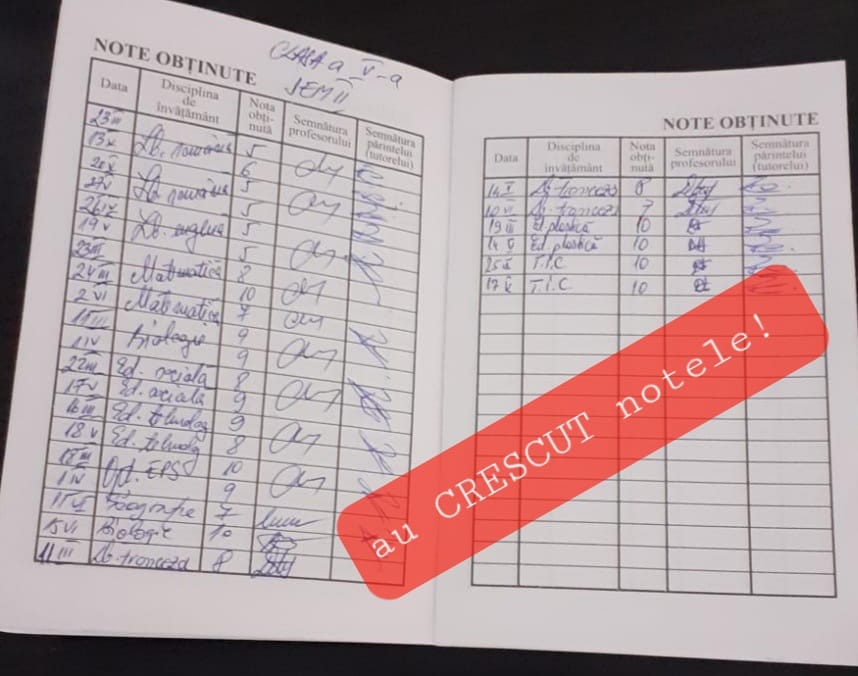 CLASA a V-a
SEM II
NOTE OBȚINUTE
Data Disciplina de învățământ Nota obți-nută Semnătura profesorului Semnătura părintelui (tutorelui)
23 III
13 X Lb. română 5
20 X 6
27 V Lb. română 5
26 IV 5
19 V Lb. engleză 5
23 III 5
24 III Matematică 8
2 VI 10
11 III Matematică 7
1 IV Biologie 9
22 III 9
17 V Ed. socială 8
16 III Ed. socială 9
18 V Ed. tehnolog 9
15 III Ed. tehnolog 8
1 IV Opț. EPS 10
9
Geografie 7
15 VI Biologie 10
11 III Lb. franceză 8
NOTE OBȚINUTE
Data Disciplina de învățământ Nota obți-nută Semnătura profesorului Semnătura părintelui (tutorelui)
14 Lb. franceză 8
10 VI Lb. franceză 7
19 III Ed. plastică 10
14 V Ed. plastică 10
25 T.I.C 10
17 T.I.C 10
au CRESCUT notele!